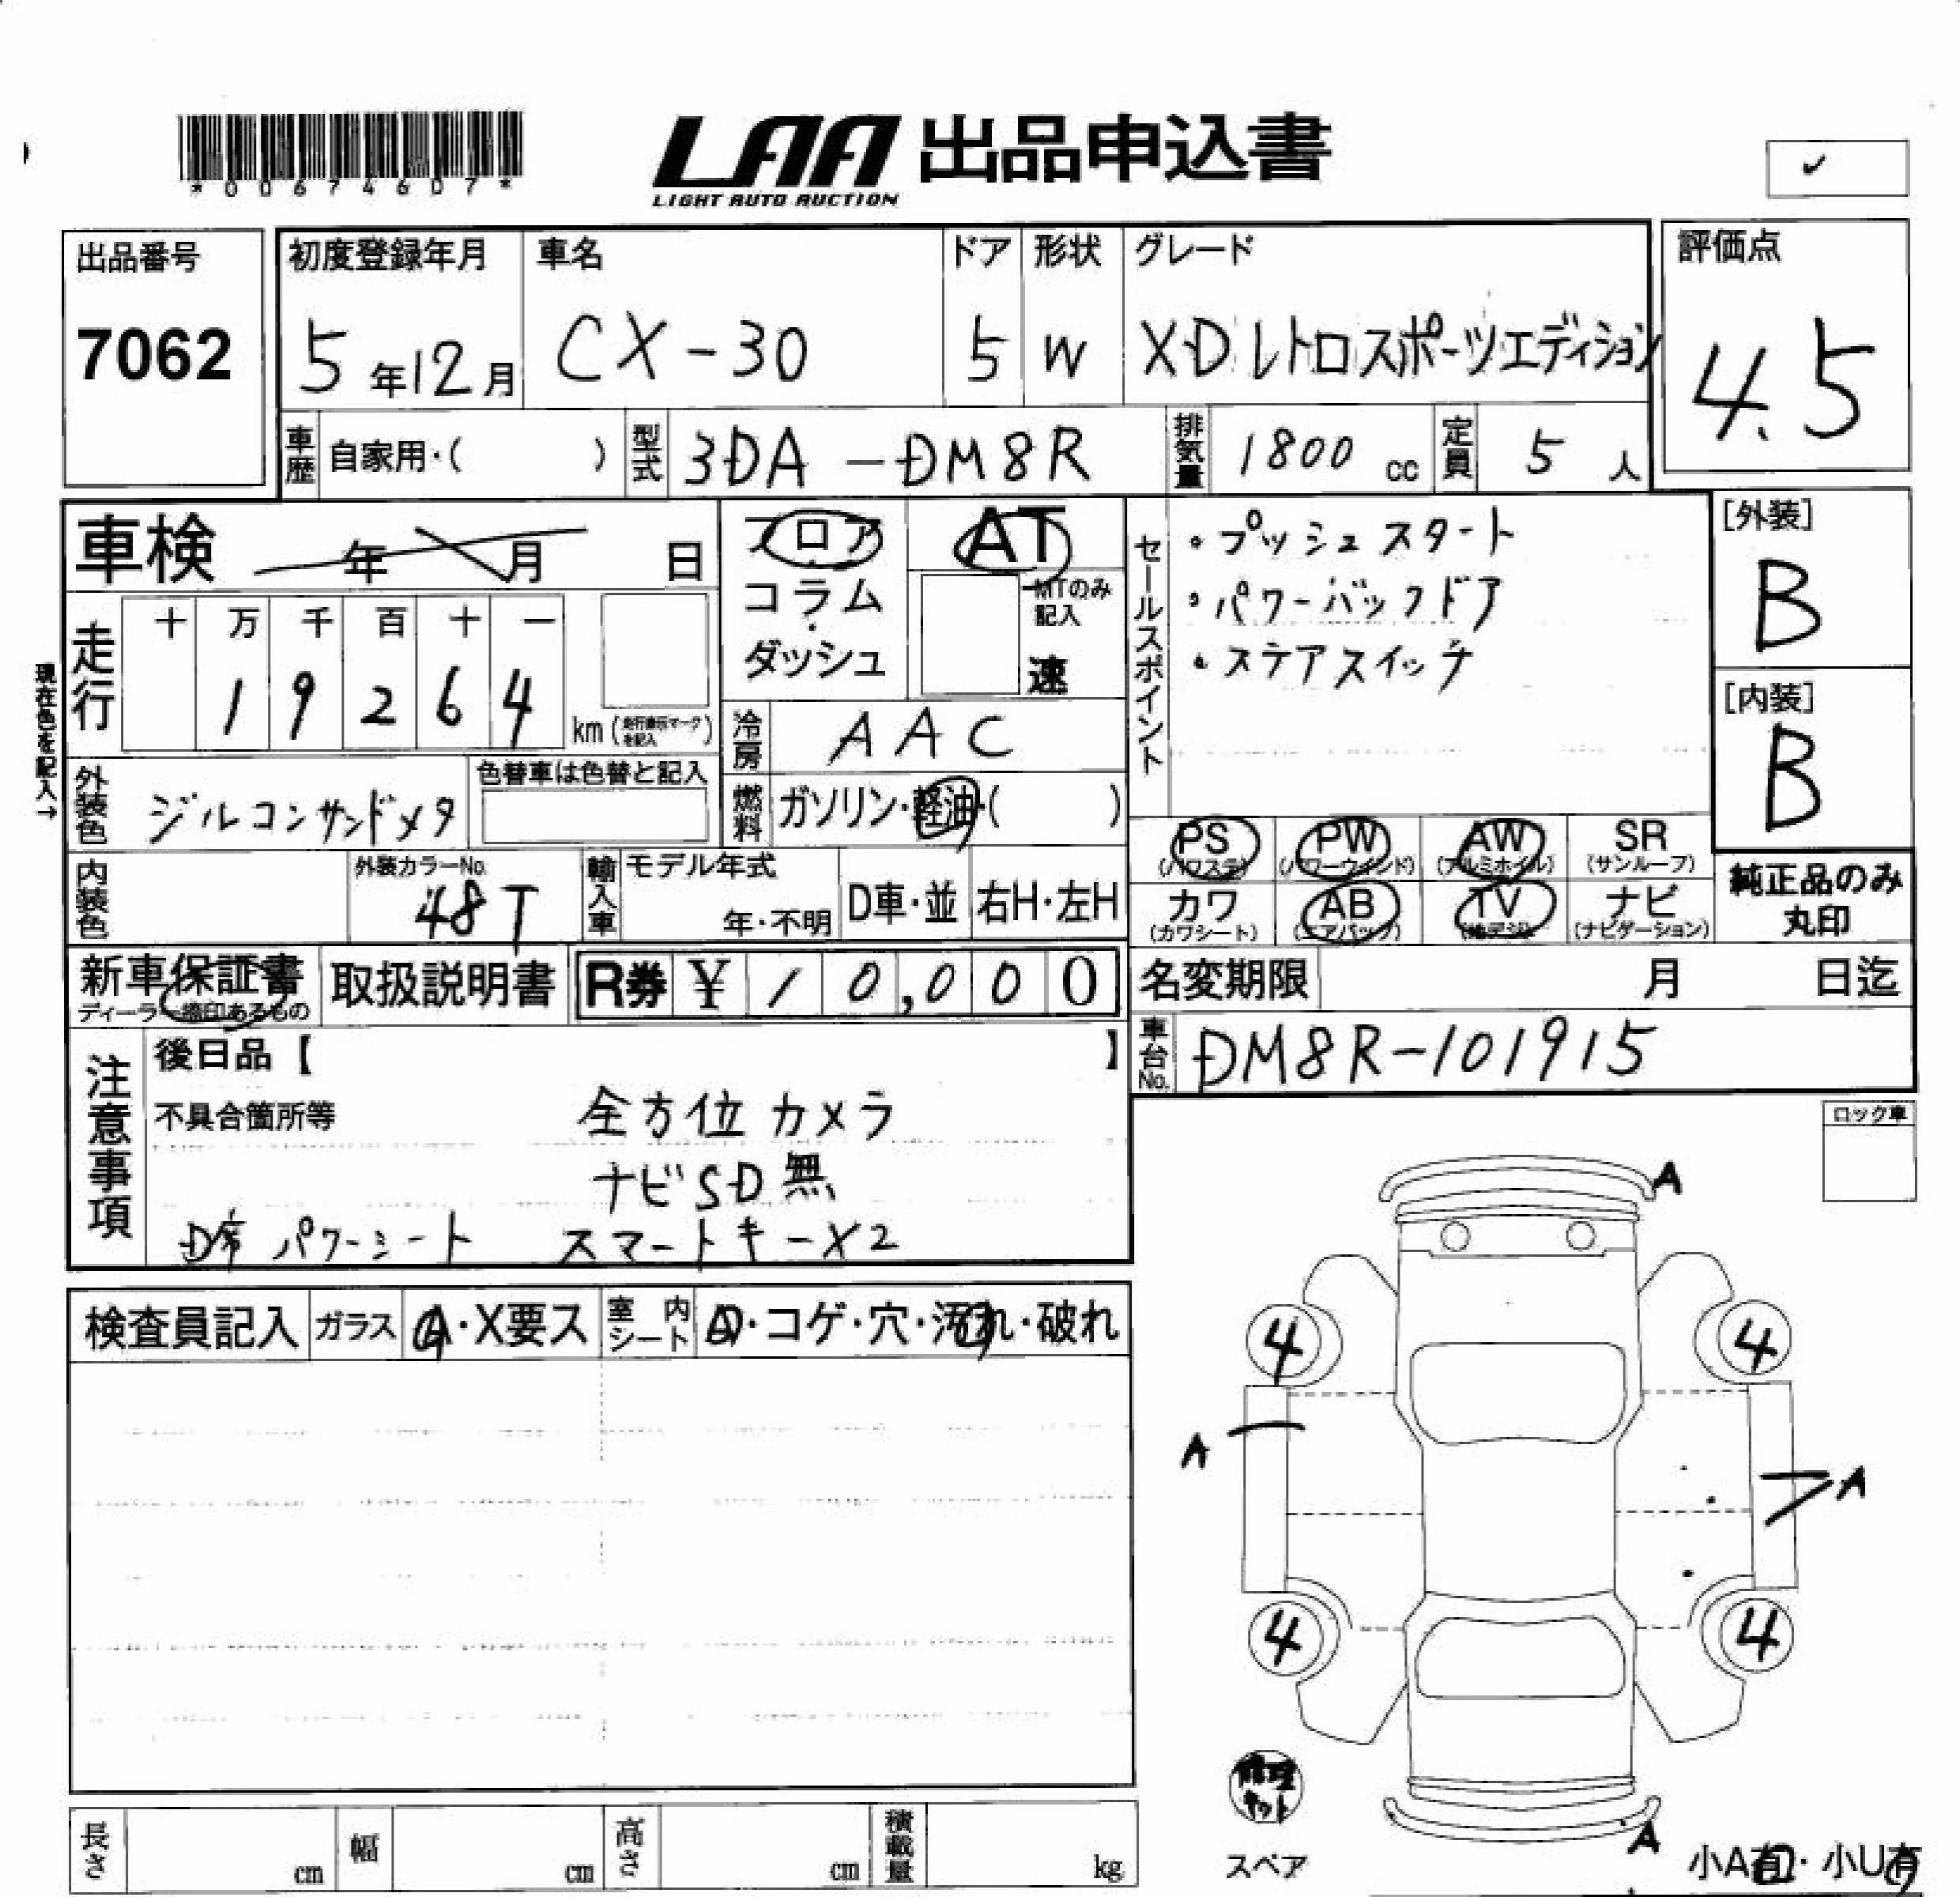 *00674607*
LAA 出品申込書
LIGHT AUTO AUCTION
✓
出品番号
7062
初度登録年月
5年12月
車名
CX-30
ドア
5
形状
W
グレード
XDレトロスポーツエディション
評価点
4.5
車歴
自家用・( )
型式
3DA-DM8R
排気量
1800 cc
定員
5 人
車検 年 月 日
フロア
コラム
ダッシュ
AT
MTのみ記入
速
セールスポイント
・プッシュスタート
・パワーバックドア
・ステアスイッチ
[外装]
B
[内装]
B
現在色を記入→
走行
十 万 千 百 十 一
1 9 2 6 4
km (走行表示マークを記入)
冷房
AAC
外装色
ジルコンサンドメタ
色替車は色替と記入
燃料
ガソリン・軽油・( )
PS (パワステ)
PW (パワーウィンド)
AW (アルミホイル)
SR (サンルーフ)
内装色
外装カラーNo.
48T
輸入車
モデル年式
年・不明
D車・並
右H・左H
カワ (カワシート)
AB (エアバック)
TV (地デジ)
ナビ (ナビゲーション)
純正品のみ
丸印
新車保証書
取扱説明書
R券 ¥ 10,000
名変期限 月 日迄
車台No.
DM8R-101915
注意事項
後日品【 】
不具合箇所等
全方位カメラ
ナビSD無
D席パワーシート スマートキーX2
ロック車
検査員記入
ガラス
A・X要ス
室内シート
・コゲ・穴・汚れ・破れ
A
4
4
A
A
4
4
修理キット
スペア
A
小A有・小U有
長さ cm
幅 cm
高さ cm
積載量 kg